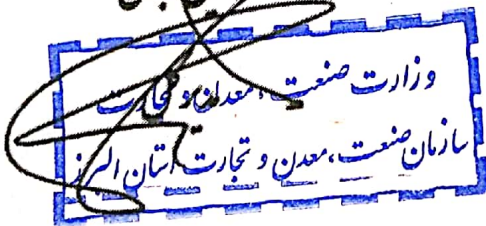 وزارت صنعت، معدن و تجارت
سازمان صنعت، معدن و تجارت استان البرز